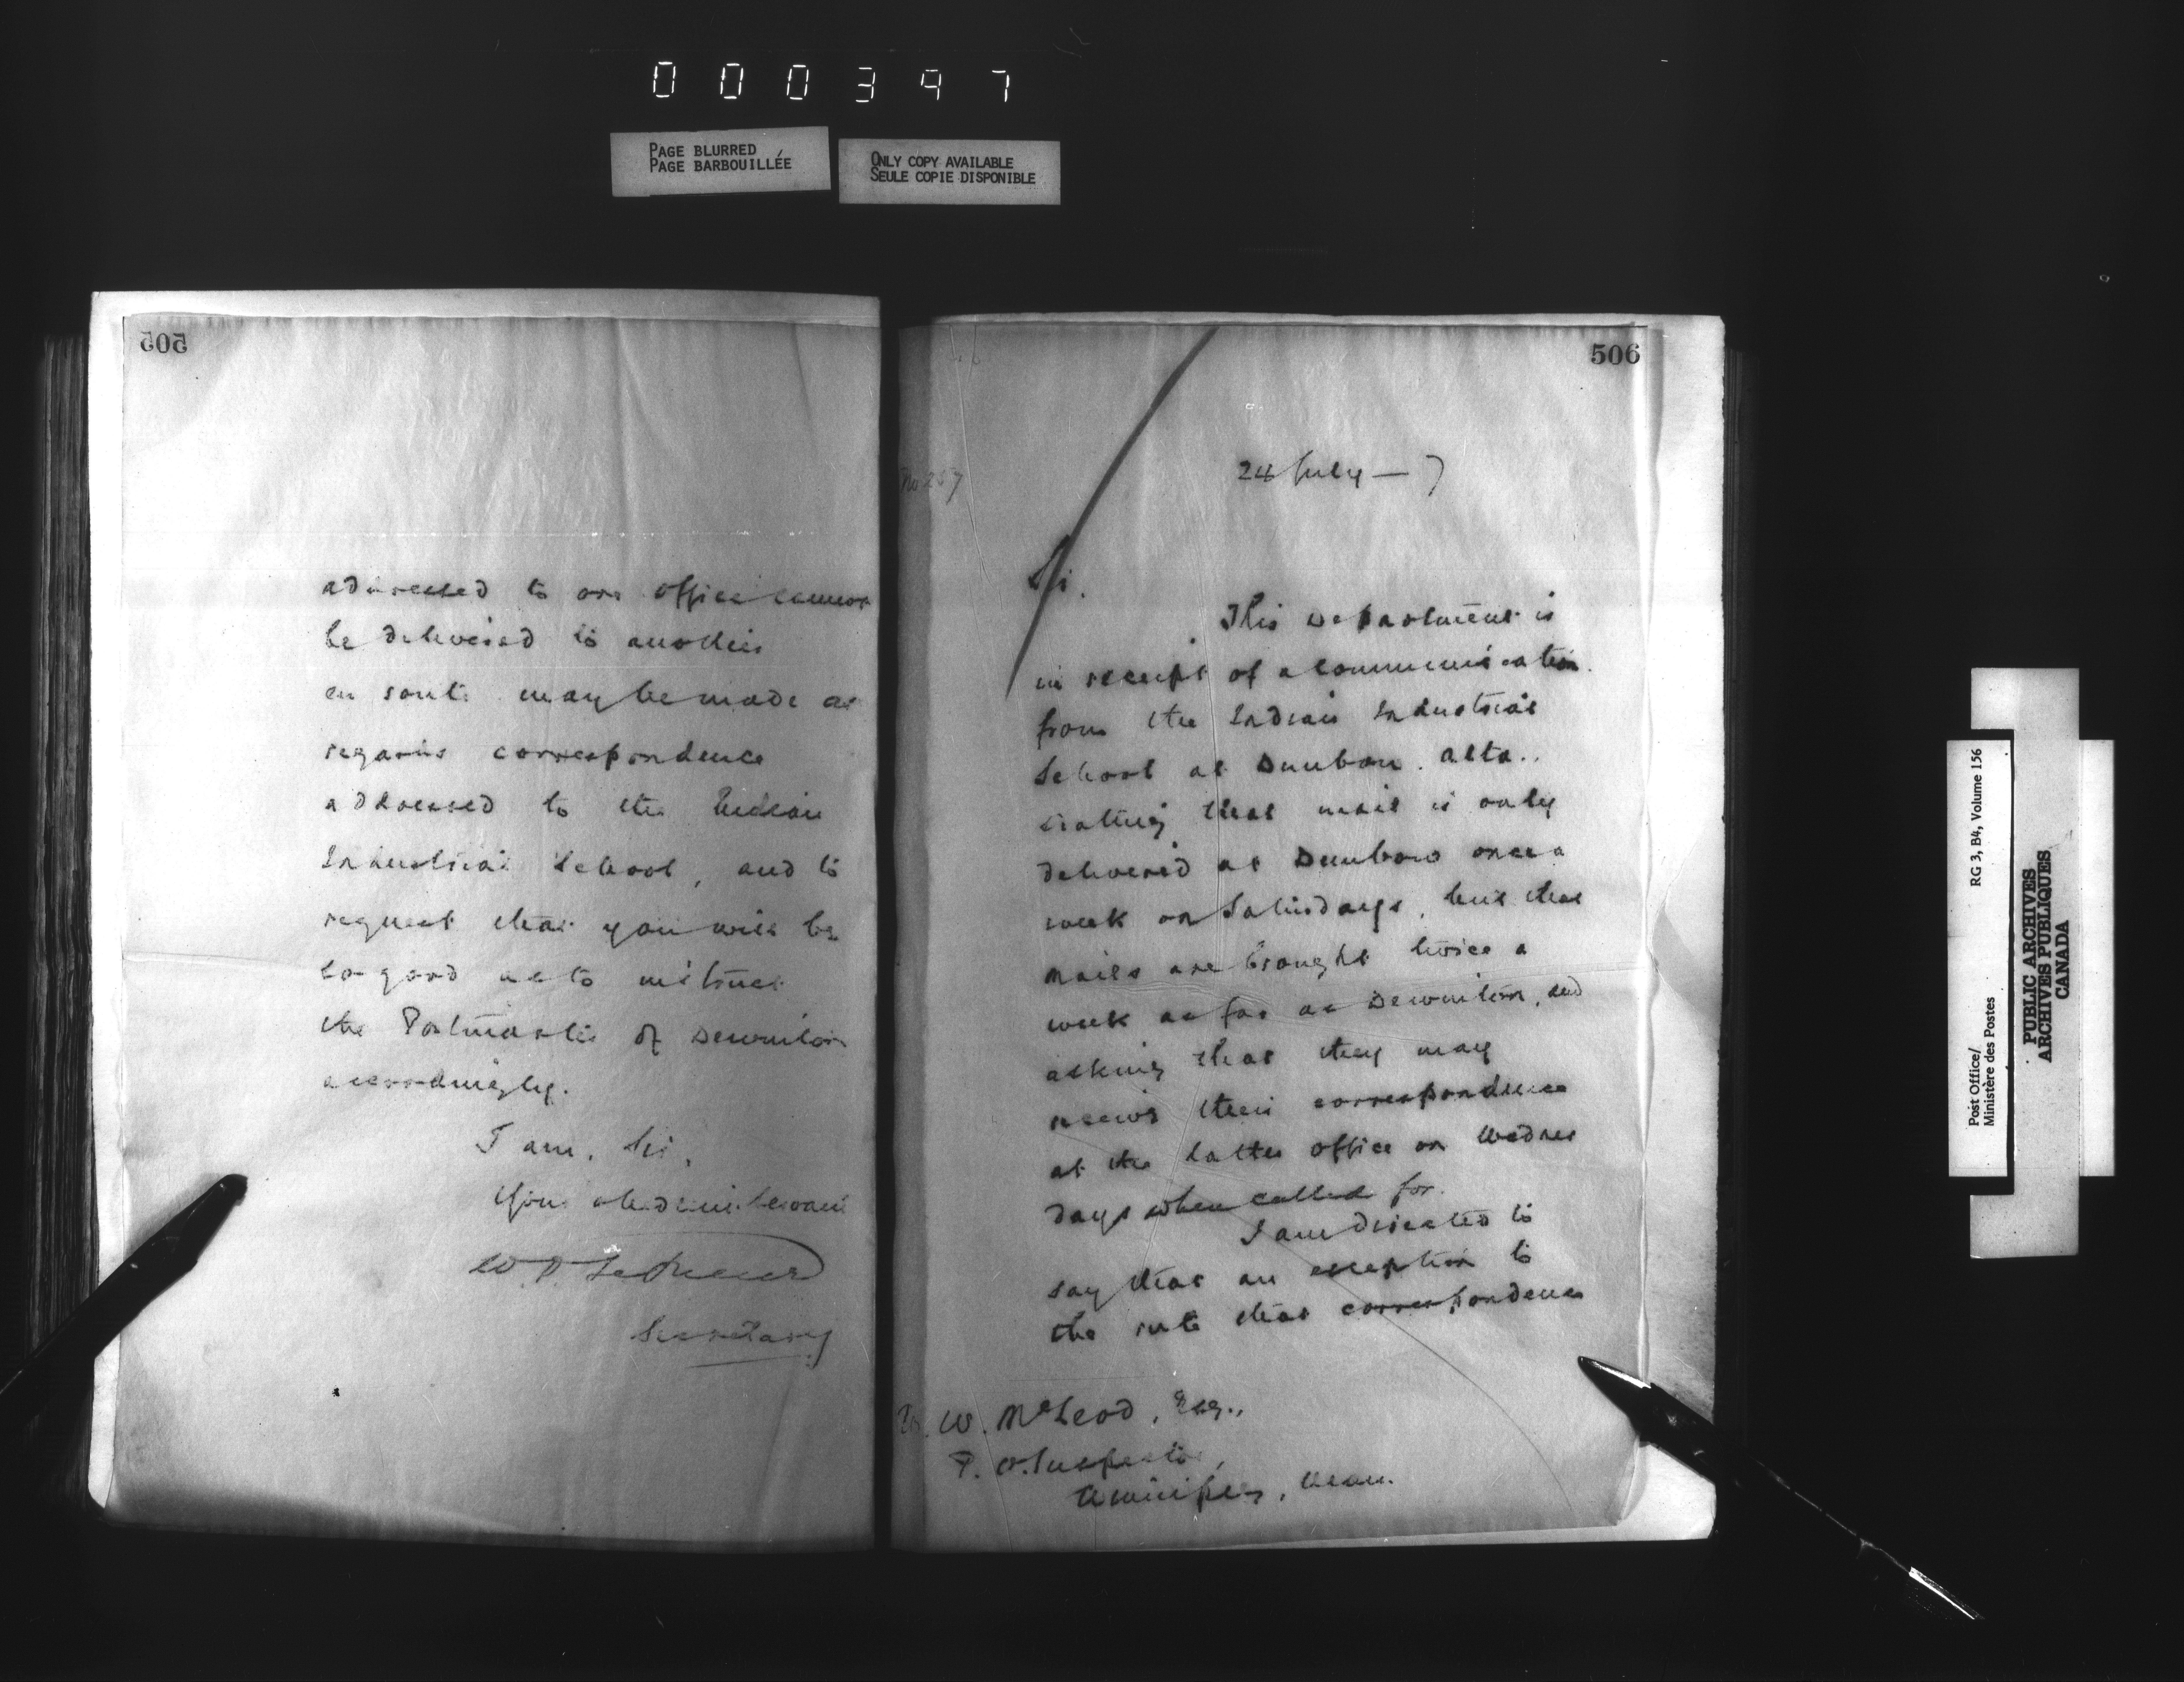 000397
PAGE BLURRED
PAGE BARBOUILLÉE
ONLY COPY AVAILABLE
SEULE COPIE DISPONIBLE
505
addressed to one office cannot
be delivered to another
en route may be made as
regards correspondence
addressed to the Indian
Industrial School, and to
request that you will be
so good as to instruct
the Postmaster of Dewinton
accordingly.
I am, Sir,
Your obedient servant
Secretary
506
No 257
24 July — 7
Sir.
This Department is
in receipt of a communication
from the Indian Industrial
School at Dunbow. Alta..
stating that mail is only
delivered at Dunbow once a
week on Saturdays, but that
mails are brought twice a
week as far as Dewinton, and
asking that they may
receive their correspondence
at the latter office on Wednes
days when called for.
I am directed to
say that an exception to
the rule that correspondence
W. McLeod, Esq.,
P. O. Inspector,
Winnipeg, Man.
Post Office/
Ministère des Postes
RG 3, B4, Volume 156
PUBLIC ARCHIVES
ARCHIVES PUBLIQUES
CANADA